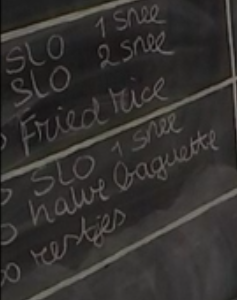 SLO 1 snee
SLO 2 snee
Fried rice
SLO 1 snee
halve baguette
restjes